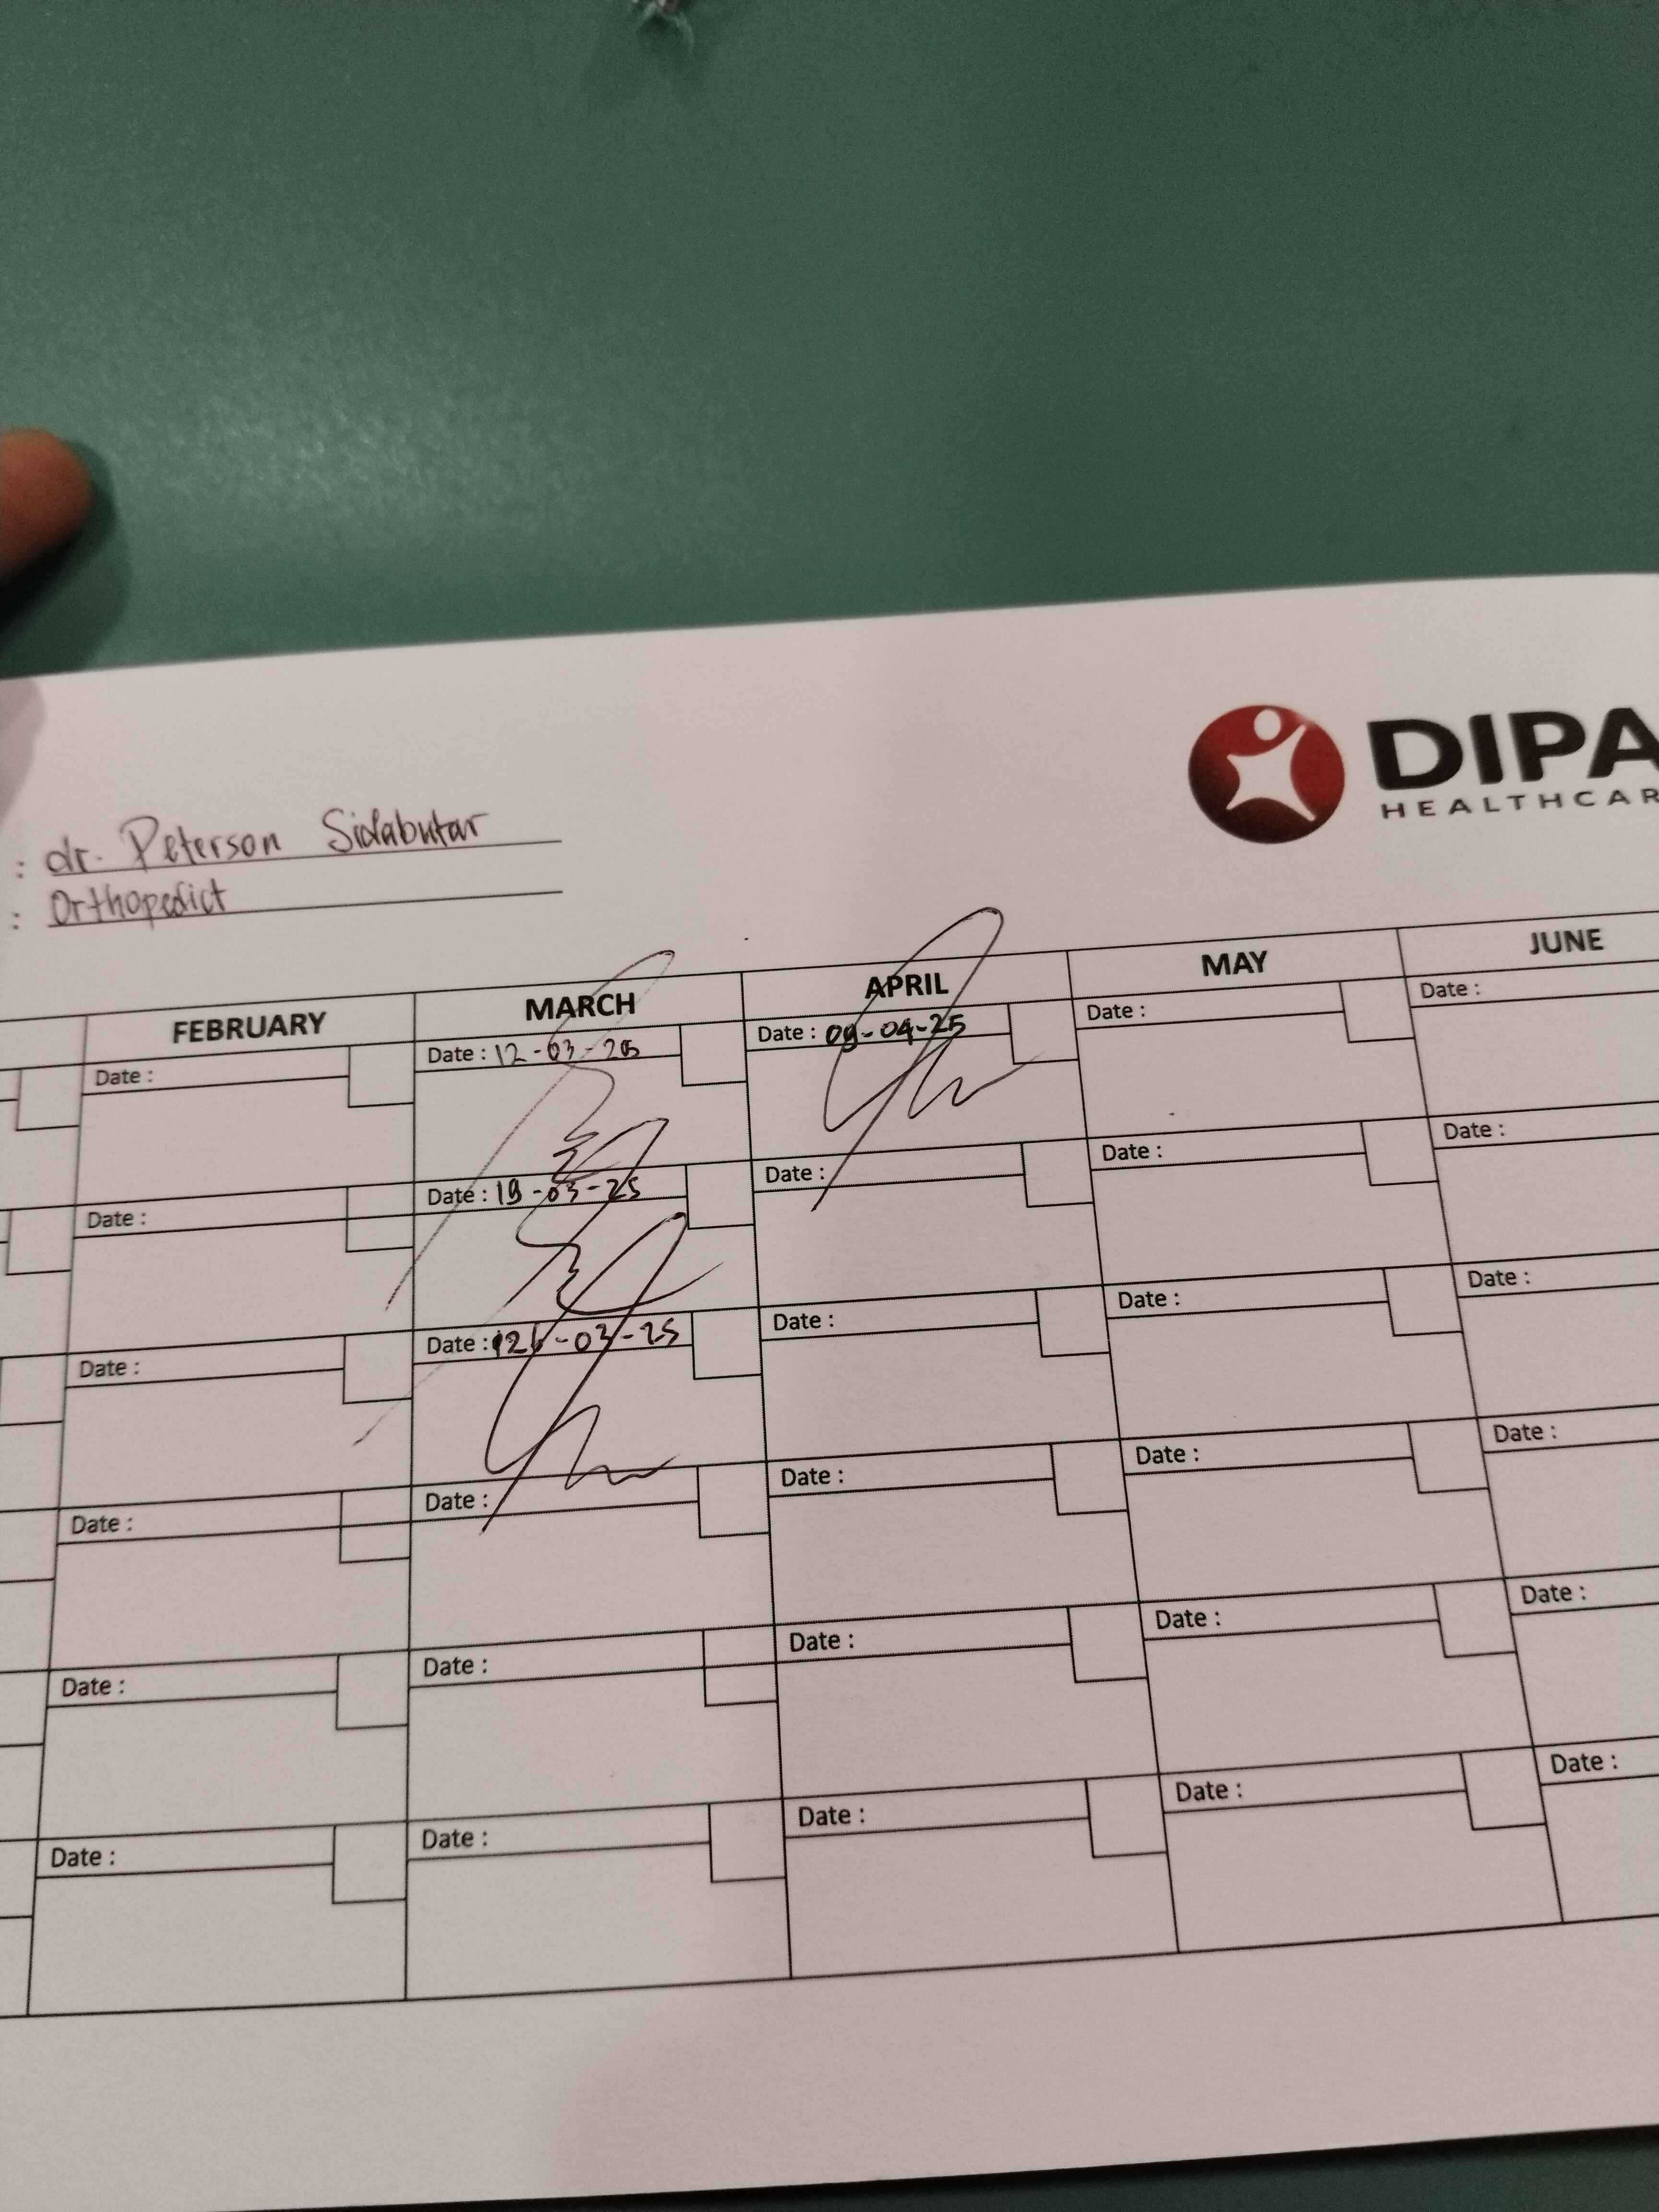 DIPA
HEALTHCAR
: dr. Peterson Sidabutar
: Orthopedict
FEBRUARY MARCH APRIL MAY JUNE
Date : Date : 12-03-25 Date : 09-04-25 Date : Date :
Date : Date : 19-03-25 Date : Date : Date :
Date : Date : 26-03-25 Date : Date : Date :
Date : Date : Date : Date : Date :
Date : Date : Date : Date : Date :
Date : Date : Date : Date : Date :